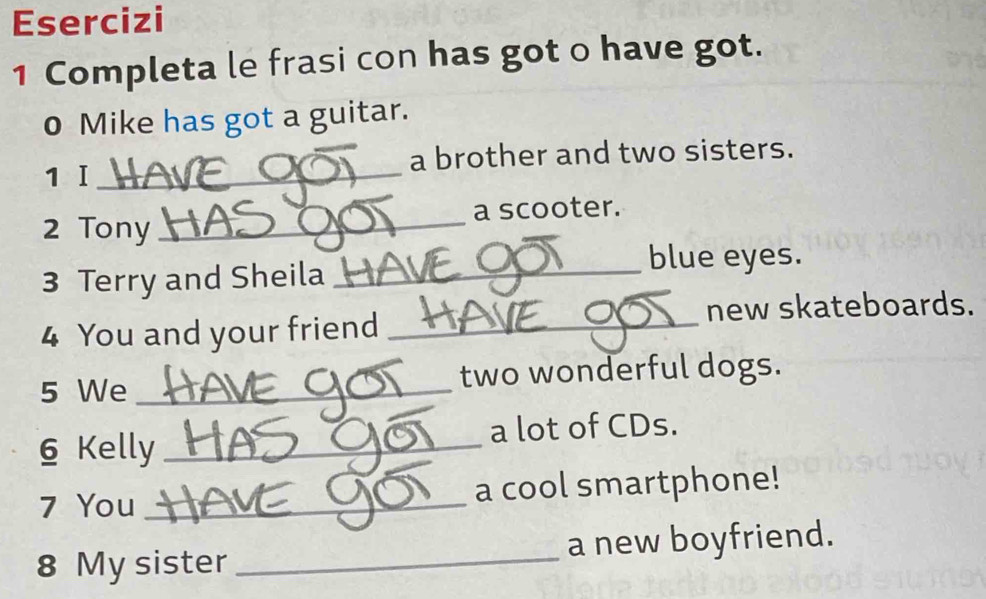 Esercizi
1 Completa le frasi con has got o have got.
0 Mike has got a guitar.
1 I HAVE gOT a brother and two sisters.
2 Tony HAS gOT a scooter.
3 Terry and Sheila HAVE gOT blue eyes.
4 You and your friend HAVE gOT new skateboards.
5 We HAVE gOT two wonderful dogs.
6 Kelly HAS gOT a lot of CDs.
7 You HAVE gOT a cool smartphone!
8 My sister ______ a new boyfriend.